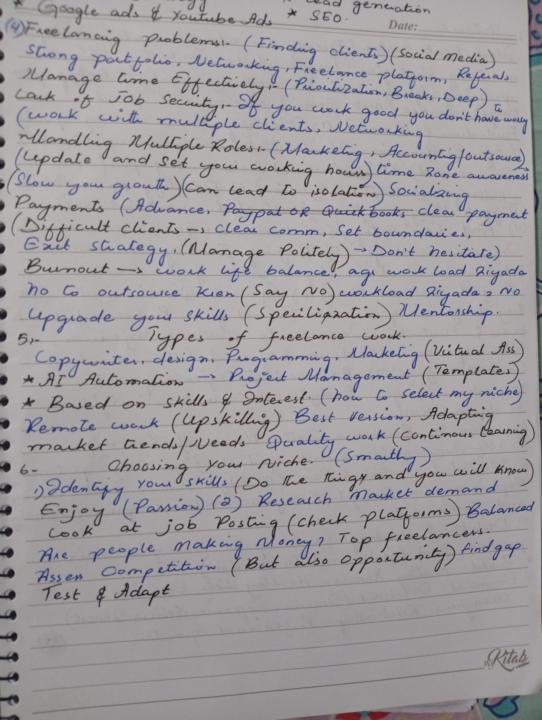 Lead generation
* Google ads & Youtube Ads * SEO.
Date:
(4) Freelancing problems:- (Finding clients) (Social media)
Strong portfolio, Networking, Freelance platform, Referals
Manage time Effectively:- (Prioritization, Breaks, Deep)
Lack of Job Security:- If you work good you don't have worry to
(work with multiple clients, Networking
Handling Multiple Roles:- (Marketing, Accounting/outsource)
(Update and Set your working hours) time zone awareness
(Slow your growth) (Can lead to isolation) Socializing
Payments (Advance, Paypal OR Quickbooks clear payment
(Difficult clients → clear comm, Set boundaries,
Exit strategy, (Manage Politely) → Don't hesitate)
Burnout → work life balance, agr work load Ziyada
ho to outsource Kren (Say No) workload Ziyada, No
Upgrade your skills (Specilization) Mentorship.
5:- Types of freelance work.
Copywriter, design, Programming, Marketing (Virtual Ass)
* AI Automation → Project Management (Templates)
* Based on skills & Interest. (how to select my niche)
Remote work (Upskilling) Best version, Adapting
market trends/Needs Quality work (Continous Learning)
6- Choosing your Niche. (Smartly)
1) Identify your skills (Do the things and you will know)
Enjoy (Passion) (2) Research Market demand
Look at job Posting (check platforms) Balanced
Are people making Money? Top freelancers.
Assess Competition (But also opportunity) find gap.
Test & Adapt
Kitab